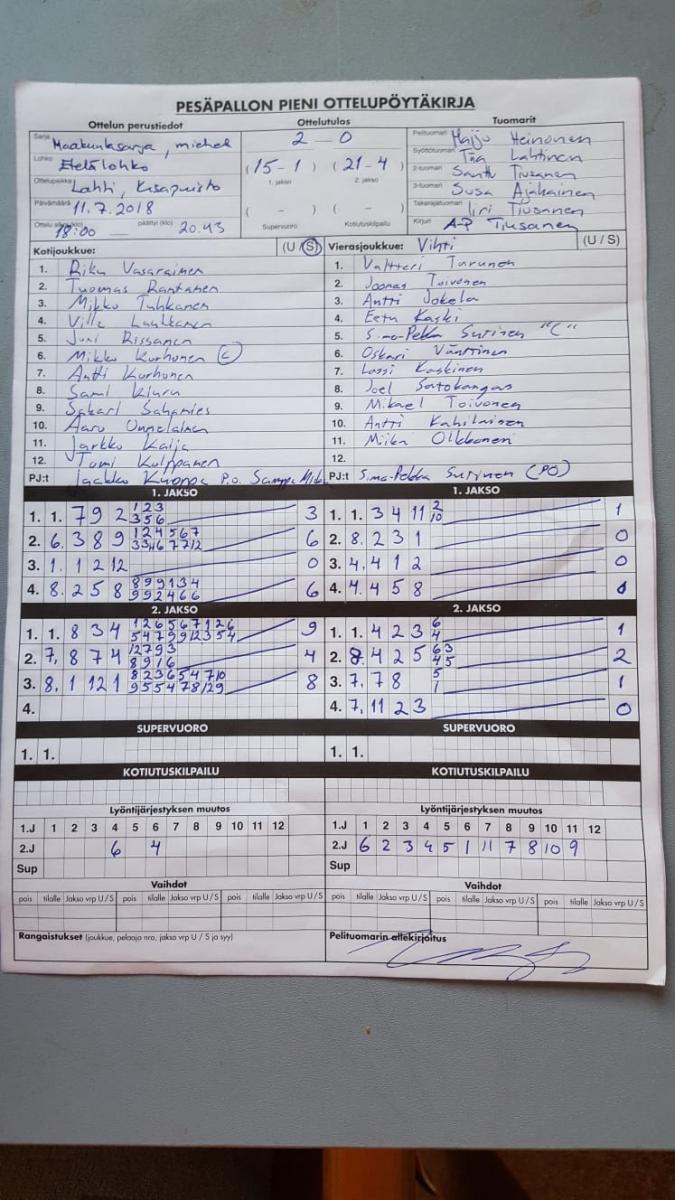 PESÄPALLON PIENI OTTELUPÖYTÄKIRJA
Ottelun perustiedot
Sarja Maakuntasarja, miehet
Lohko Etelälohko
Ottelupaikka Lahti, Kisapuisto
Päivämäärä 11.7.2018
18:00 päättyi (klo) 20.43
Ottelutulos
2 - 0
(15-1) (21-4)
1. jakso 2. jakso
( - ) ( - )
Supervuoro Kotiutuskilpailu
Tuomarit
Pelituomari Maiju Heinonen
Syöttötuomari Tiia Lahtinen
2-tuomari Santtu Tiusanen
3-tuomari Susa
Takarajatuomari Tiusanen
Kirjuri A-P Tiusanen
Kotijoukkue: (U / S)
1. Riku Vasarainen
2. Tuomas Rantanen
3. Mikko Tuhkanen
4. Ville
5. Rissanen
6. Mikko Korhonen C
7. Antti Korhonen
8. Sami
9. Sakari Sahamies
10. Aaro Onnelainen
11. Jarkko Kaija
12. Tomi Kolppanen
PJ:t Jaakko Kuoppa P.O.
Vierasjoukkue: Vihti (U / S)
1. Valtteri Turunen
2. Joonas Toivonen
3. Antti Jokela
4. Eetu Kaski
5. Simo-Pekka Surinen "C"
6. Oskari Vänttinen
7. Lassi Koskinen
8. Joel Satokangas
9. Mikael Toivonen
10. Antti
11. Miika Olkkonen
12.
PJ:t Simo-Pekka Surinen (PO)
1. JAKSO
1. 1. 7 9 2 1 2 3 3
3 5 6
2. 6. 3 8 9 1 2 4 5 6 7 6
3. 1. 1 2 12 0
4. 8. 2 5 8 8 9 9 1 3 4 6
9 9 2 4 6 6
1. JAKSO
1. 1. 3 4 11 2 1
10
2. 8. 2 3 1 0
3. 4. 4 1 2 0
4. 4. 4 5 8
2. JAKSO
1. 1. 8 3 4 1 2 6 5 6 7 1 2 6 9
5 4 7 9 9 12 3 5 4
2. 7, 8 7 4 12 7 9 3 4
8 9 1 6
3. 8, 1 12 1 8 2 3 6 5 4 7 10 8
9 5 5 4 7 8 12 9
4.
2. JAKSO
1. 1. 4 2 3 6 1
4
2. 8. 4 2 5 6 3 2
4 5
3. 7, 7 8 5 1
1
4. 7, 11 2 3 0
SUPERVUORO
1. 1.
SUPERVUORO
1. 1.
KOTIUTUSKILPAILU
KOTIUTUSKILPAILU
Lyöntijärjestyksen muutos
1.J 1 2 3 4 5 6 7 8 9 10 11 12
2.J 6 4
Sup
Lyöntijärjestyksen muutos
1.J 1 2 3 4 5 6 7 8 9 10 11 12
2.J 6 2 3 4 5 1 11 7 8 10 9
Sup
Vaihdot
pois tilalle Jakso vrp U / S pois tilalle Jakso vrp U / S
Vaihdot
pois tilalle Jakso vrp U / S pois tilalle Jakso vrp U / S
Rangaistukset (joukkue, pelaaja nro, jakso vrp U / S ja syy)
Pelituomarin allekirjoitus